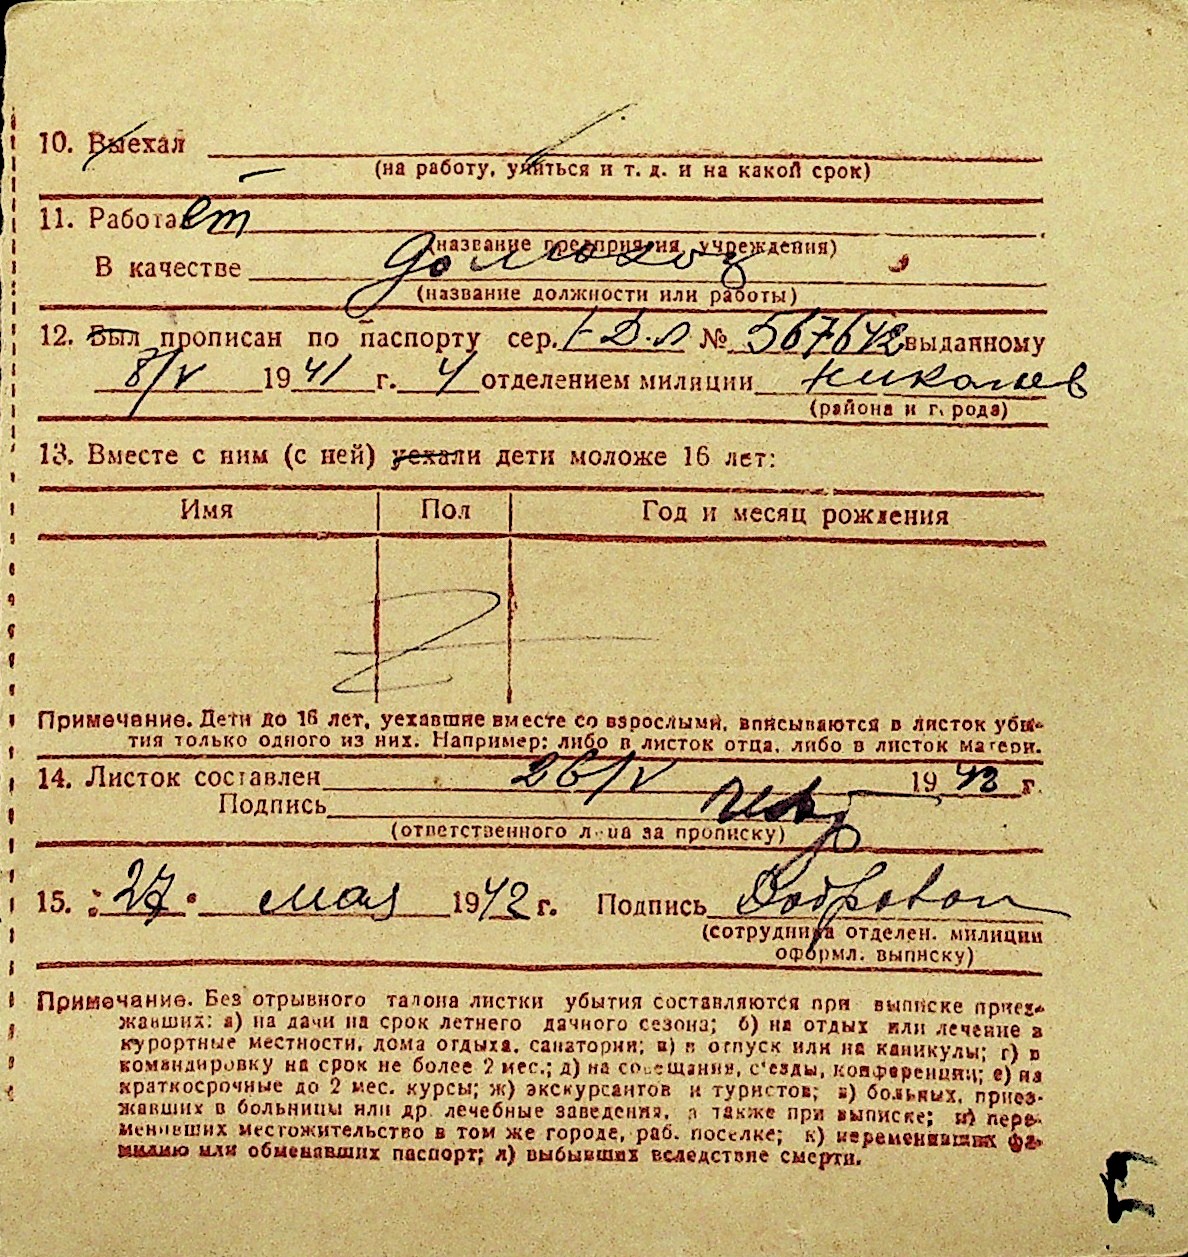 10. Выехал
(на работу, учиться и т. д. и на какой срок)
11. Работает
(название предприятия, учреждения)
В качестве домохоз
(название должности или работы)
12. Был прописан по паспорту сер. I-Д.Л № 567642 выданному
8/V 1941 г. 4 отделением милиции Николаев
(района и города)
13. Вместе с ним (с ней) уехали дети моложе 16 лет:
Имя Пол Год и месяц рождения
Примечание. Дети до 16 лет, уехавшие вместе со взрослыми, вписываются в листок убы-
тия только одного из них. Например: либо в листок отца, либо в листок матери.
14. Листок составлен 26/V 1942 г.
Подпись
(ответственного лица за прописку)
15. "27" мая 1942 г. Подпись
(сотрудника отделен. милиции
оформл. выписку)
Примечание. Без отрывного талона листки убытия составляются при выписке приез-
жавших: а) на дачи на срок летнего дачного сезона; б) на отдых или лечение в
курортные местности, дома отдыха, санатории; в) в отпуск или на каникулы; г) в
командировку на срок не более 2 мес.; д) на совещания, съезды, конференции; е) на
краткосрочные до 2 мес. курсы; ж) экскурсантов и туристов; з) больных, приез-
жавших в больницы или др. лечебные заведения, а также при выписке; и) пере-
менивших местожительство в том же городе, раб. поселке; к) переменивших фа-
милию или обменавших паспорт; л) выбывших вследствие смерти.